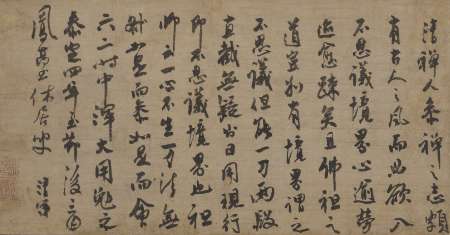 清禅人参禅之志頗
有古人之風而必欲入
不思議境界心逾勞
愈疎矣且佛祖之
道豈別有境界謂之
不思議但能一刀兩段
直截無疑日用現行
即不思議境界也祖
師云一心不生万法無
如是而参如是而
六二時中渾大用勉之
泰定四年節後三日
鳳臺休居叟 清茂